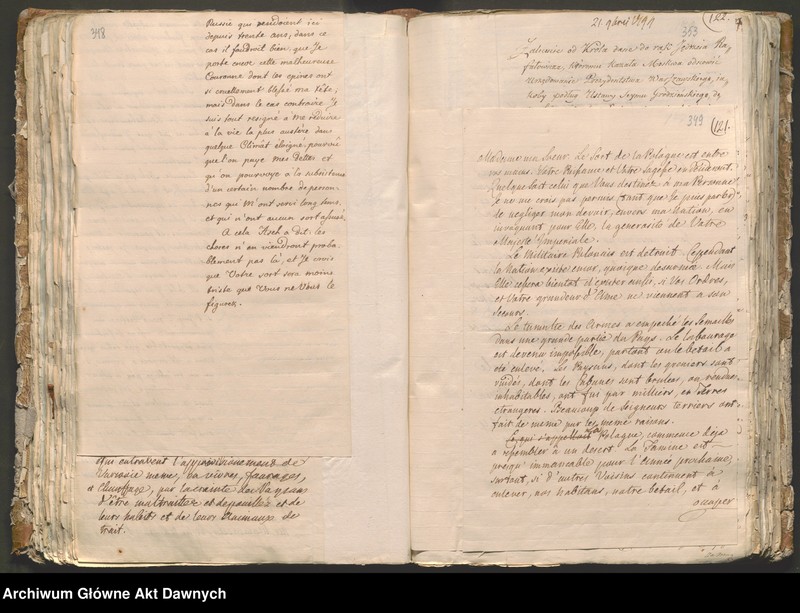 348
Russie qui rendoient ici
depuis trente ans; dans ce
cas il faudroit bien que Je
porte encore cette malheureuse
Couronne dont les epines ont
si cruellement blessé ma tête;
mais dans le cas contraire Je
suis tout resigné a me réduire
à la vie la plus austére dans
quelque Climat éloigné, pourvuë
que l'on paye mes Dettes et
qu'on pourvoye a la subsistence
d'un certain nombre de person-
nes qui m'ont servi long tems,
et qui n'ont aucun sort assuré.
A cela Asch a dit: les
choses n'en viendront proba-
blement pas là, et Je crois
que Votre sort sera moins
triste que Vous ne Vous le
figurez.
qui entravent l'approvisionement de
Varsovie meme, en vivres, fourages,
et Chauffage, par la crainte des Paysans
d'être maltraités et depouillés et de
leurs habits et de leurs Animaux de
trait.
21 9bris 1794
122.
353
Zalecenie od Króla dane do rąk Sędziego Ra-
fałowicza, któremu kazała Moskwa odnowić
urzędowanie Prezydentstwa Warszawskiego, ja-
koby podług Ustawy Seymu Grodzieńskiego,
349
121.
Madame ma Soeur. Le Sort de la Pologne est entre
vos mains. Votre Puissance et Votre sagesse en decideront.
Quelque soit celui que Vous destinez à ma Personne
Je ne me crois pas permis, (tant que Je puis parler)
de negliger mon devoir, envers ma Nation, en
invoquant pour Elle, la generosité de Votre
Majesté Imperiale.
Le Militaire Polonais est detruit. Cependant
la Nation existe encor, quoique desarmée. Mais
Elle cessera bientot d'exister aussi, si Vos Ordres,
et Votre grandeur d'Ame ne viennent a son
secours.
Le tumulte des Armes a empeché les semailles
dans une grande partie du Pays. Le labourage
est devenu impossible, partout où le betail a
été enlevé. Les Paysans, dont les greniers sont
vuidés, dont les Cabanes sont brulées, ou rendues
inhabitables, ont fui par milliers, en Terres
etrangeres. Beaucoup de Seigneurs terriers ont
fait de meme par les meme raisons.
La Pologne, commence deja
a ressembler à un desert. La Famine est
presqu' immancable pour l'Année prochaine,
surtout, si d'autres Voisins continuent à
enlever, nos habitans, notre betail, et à
occuper
Archiwum Główne Akt Dawnych